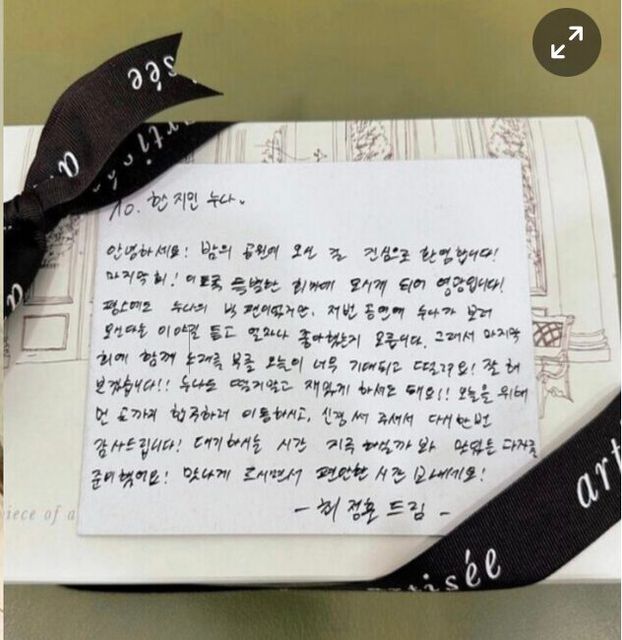 isée
artisée
a
a
To. 한지민 누나.
안녕하세요! 밤의 공원에 오신 걸 진심으로 환영합니다!
마지막 회! 이토록 특별한 회차에 모시게 되어 영광입니다!
평소에도 누나의 빅 팬이었지만, 저번 공연에 누나가 보러
오신다는 이야길 듣고 얼마나 좋아했는지 모릅니다. 그래서 마지막
회에 함께 노래를 부를 오늘이 너무 기대되고 떨려요! 잘 해
보겠습니다!! 누나도 떨지말고 재밌게 하셔도 돼요!! 오늘을 위해
먼 곳까지 합주하러 이동하시고, 신경 써 주셔서 다시한번
감사드립니다! 대기하시는 시간 지루하실까 봐 맛있는 다과를
준비했어요! 맛나게 드시면서 편안한 시간 보내세요!
- 최정훈 드림 -
piece of a
art
artisée